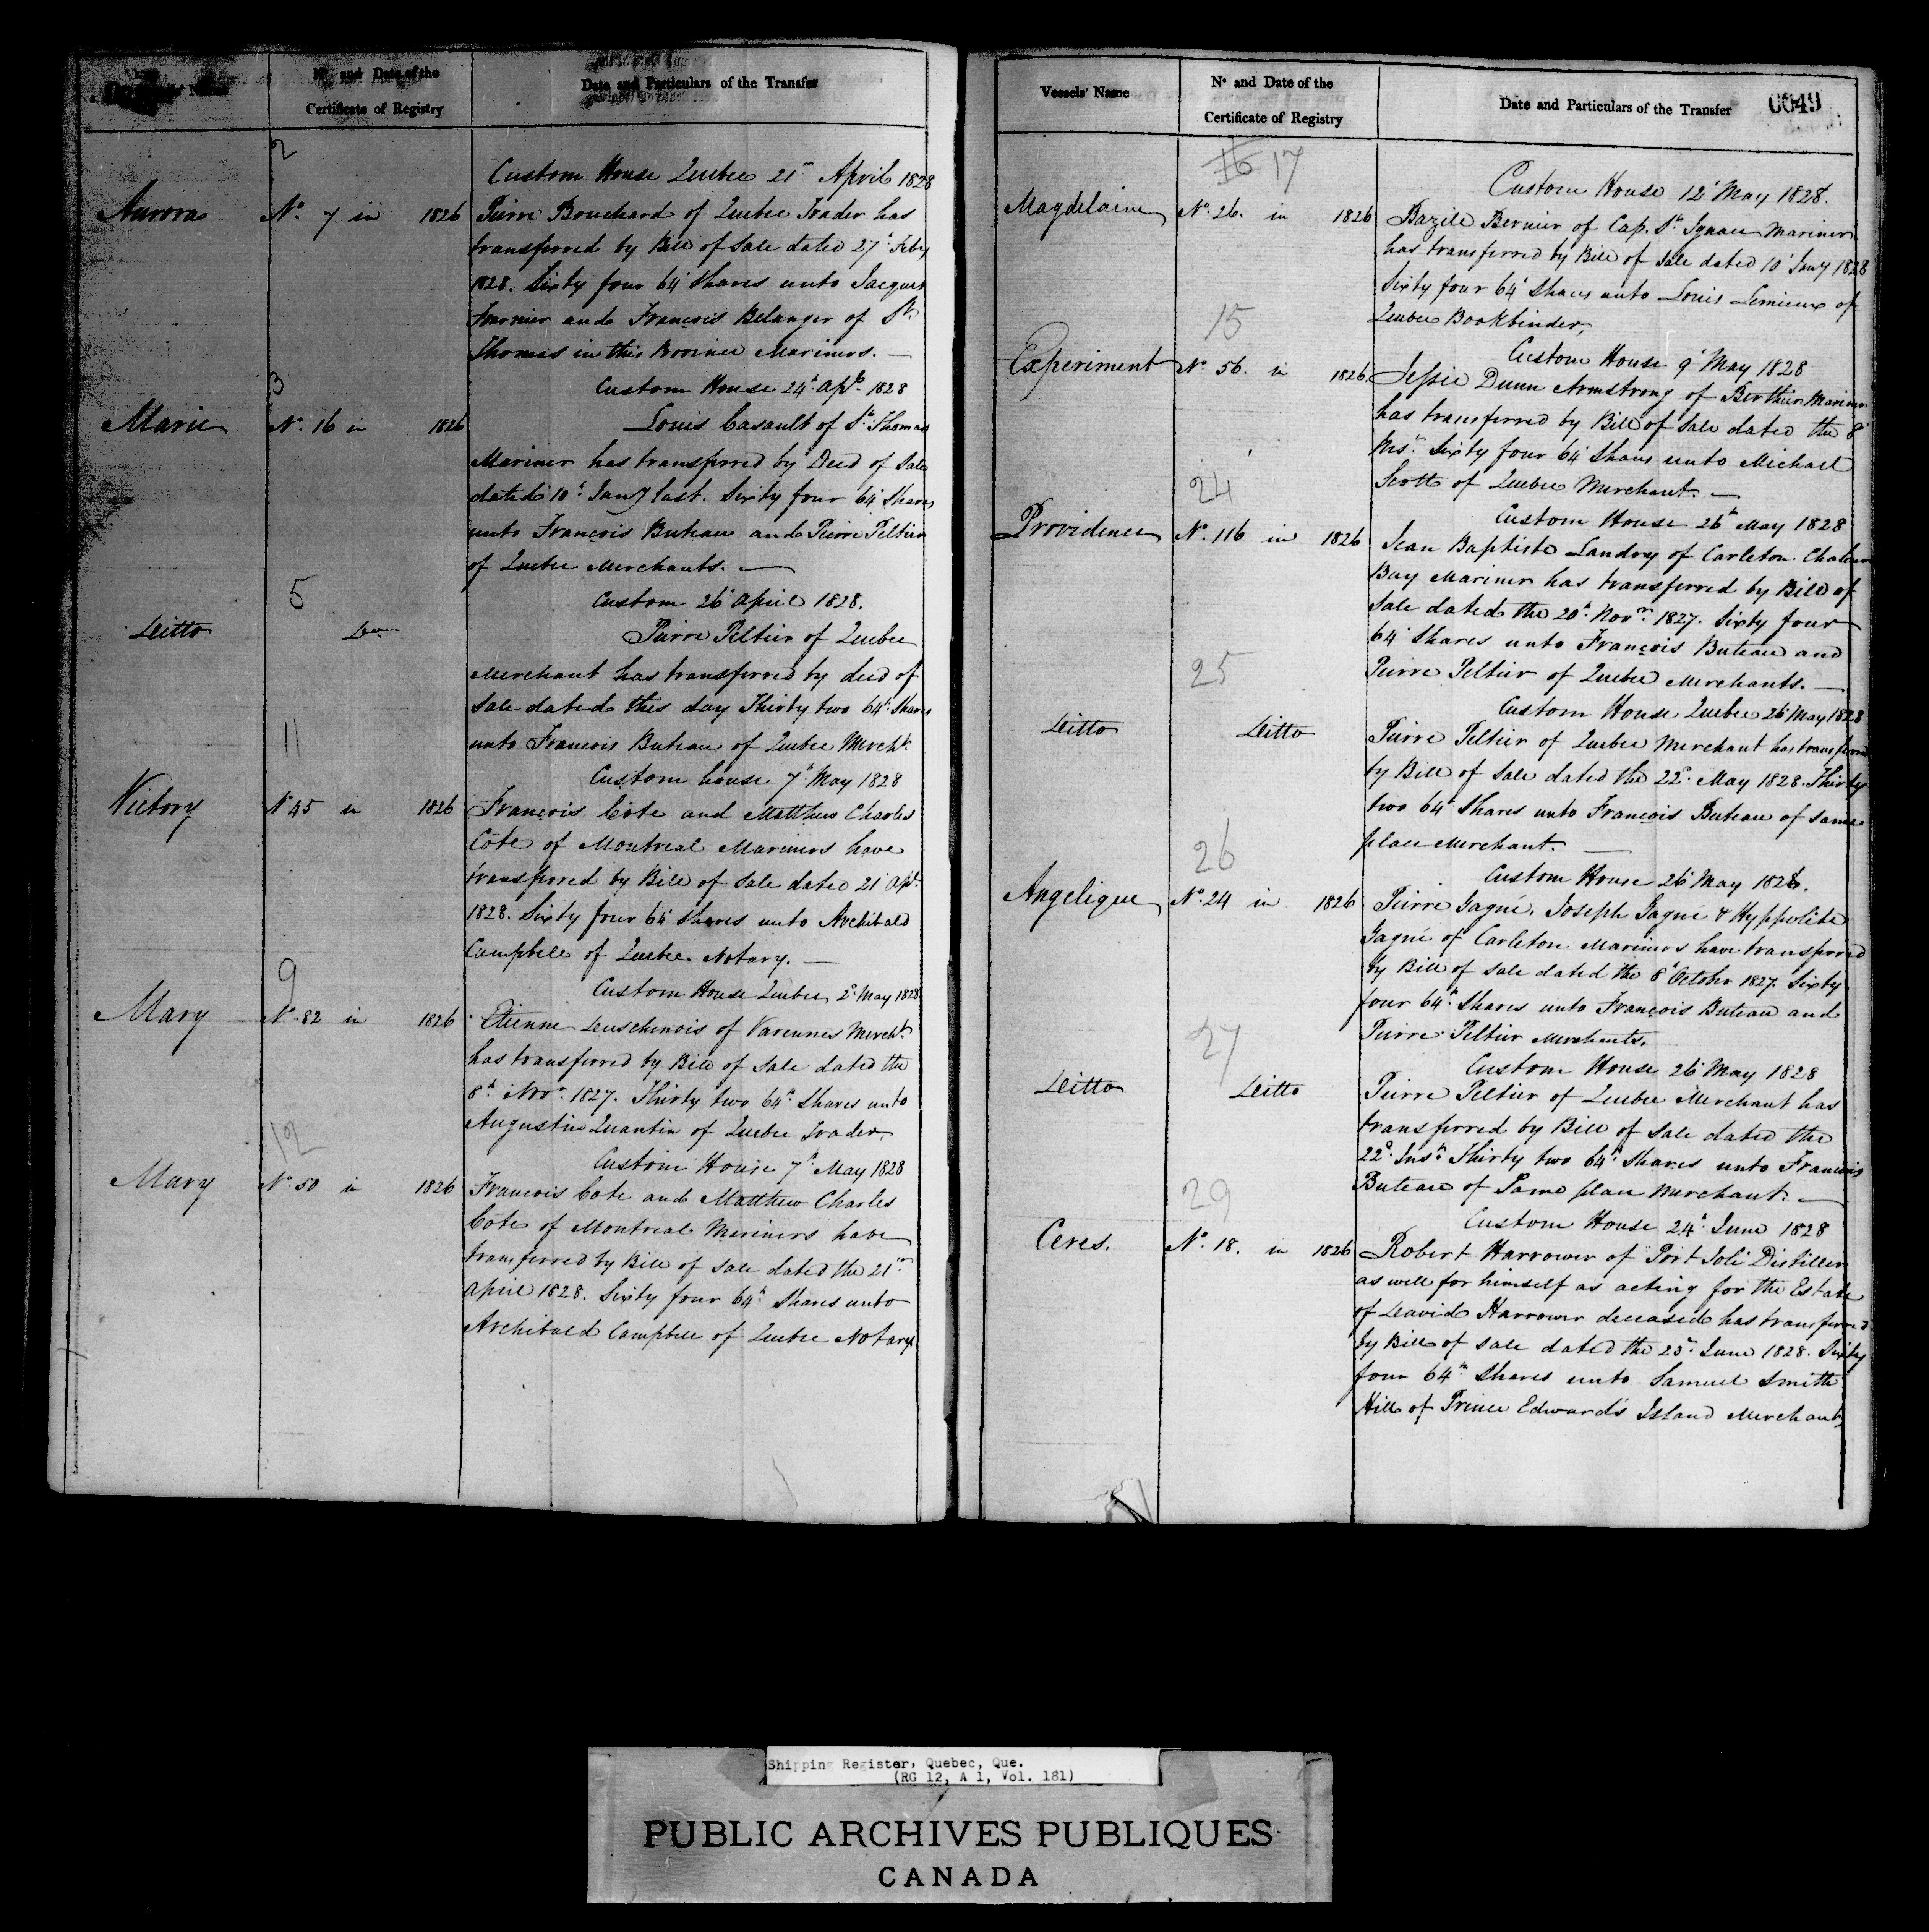 Vessels' Name
No and Date of the
Certificate of Registry
Date and Particulars of the Transfer
2
Custom House Quebec 21st April 1828
Aurora No. 7 in 1826 Pierre Bouchard of Quebec Trader has
transferred by Bill of Sale dated 27th Feby
1828. Sixty four 64th Shares unto Jacques
Fournier and François Belanger of St
Thomas in this Province Mariners. —
3
Custom House 24th Apl. 1828
Marie No. 16 in 1826 Louis Casault of St. Thomas
Mariner has transferred by Deed of Sale
dated 10th Jany last. Sixty four 64th Shares
unto François Buteau and Pierre Peltier
of Quebec Merchants. —
5
Custom 26th April 1828.
Ditto Do Pierre Peltier of Quebec
Merchant has transferred by deed of
Sale dated this day Thirty two 64th Shares
unto François Buteau of Quebec Mercht.
11
Custom house 7th May 1828
Victory No 45 in 1826 François Cote and Matthew Charles
Cote of Montreal Mariners have
transferred by Bill of Sale dated 21st Apl.
1828. Sixty four 64th Shares unto Archibald
Campbell of Quebec Notary. —
9
Custom House Quebec 2d. May 1828
Mary No. 82 in 1826 Etienne Duschenois of Varennes Mercht.
has transferred by Bill of Sale dated the
8th. Novr. 1827. Thirty two 64th. Shares unto
Augustin Quantin of Quebec Trader.
12
Custom House 7th. May 1828
Mary No. 50 in 1826 François Cote and Matthew Charles
Cote of Montreal Mariners have
transferred by Bill of Sale dated the 21st
April 1828. Sixty four 64th. Shares unto
Archibald Campbell of Quebec Notary.
Vessels' Name
No and Date of the
Certificate of Registry
Date and Particulars of the Transfer
0049
16 17
Custom House 12th May 1828.
Magdelaine No. 26. in 1826 Bazile Bernier of Cap. St. Ignace Mariner
has transferred by Bill of Sale dated 10th Jany 1828
Sixty four 64th Shares unto Louis Lemieux of
Quebec Bookbinder,
15
Custom House 9th May 1828
Experiment No. 56. in 1826. Jessie Dunn Armstrong of Berthier Mariner
has transferred by Bill of Sale dated the 8th
Inst. Sixty four 64th Shares unto Michael
Scott of Quebec Merchant. —
24
Custom House 26th May 1828
Providence No. 116 in 1826 Jean Baptiste Landry of Carleton Chaleur
Bay Mariner has transferred by Bill of
Sale dated the 20th. Novr. 1827. Sixty four
64th Shares unto François Buteau and
Pierre Peltier of Quebec Merchants. —
25
Custom House Quebec 26th May 1828
Ditto Ditto Pierre Peltier of Quebec Merchant has transferred
by Bill of Sale dated the 22d. May 1828. Thirty
two 64th Shares unto François Buteau of same
place Merchant. —
26
Custom House 26th May 1828.
Angelique No. 24 in 1826 Pierre Gagné, Joseph Gagné & Hyppolite
Gagné of Carleton Mariners have transferred
by Bill of Sale dated the 8th October 1827. Sixty
four 64th. Shares unto François Buteau and
Pierre Peltier Merchants.
27
Custom House 26th May 1828
Ditto Ditto Pierre Peltier of Quebec Merchant has
transferred by Bill of Sale dated the
22d. Inst. Thirty two 64th. Shares unto Francois
Buteau of Same place Merchant. —
29
Custom House 24th. June 1828
Ceres. No. 18. in 1826 Robert Harrower of Port Joli Distiller
as well for himself as acting for the Estate
of David Harrower deceased has transferred
by Bill of Sale dated the 23rd. June 1828. Sixty
four 64th Shares unto Samuel Smith
Hill of Prince Edward's Island Merchant,
Shipping Register, Quebec, Que.
(RG 12, A 1, Vol. 181)
PUBLIC ARCHIVES PUBLIQUES
CANADA